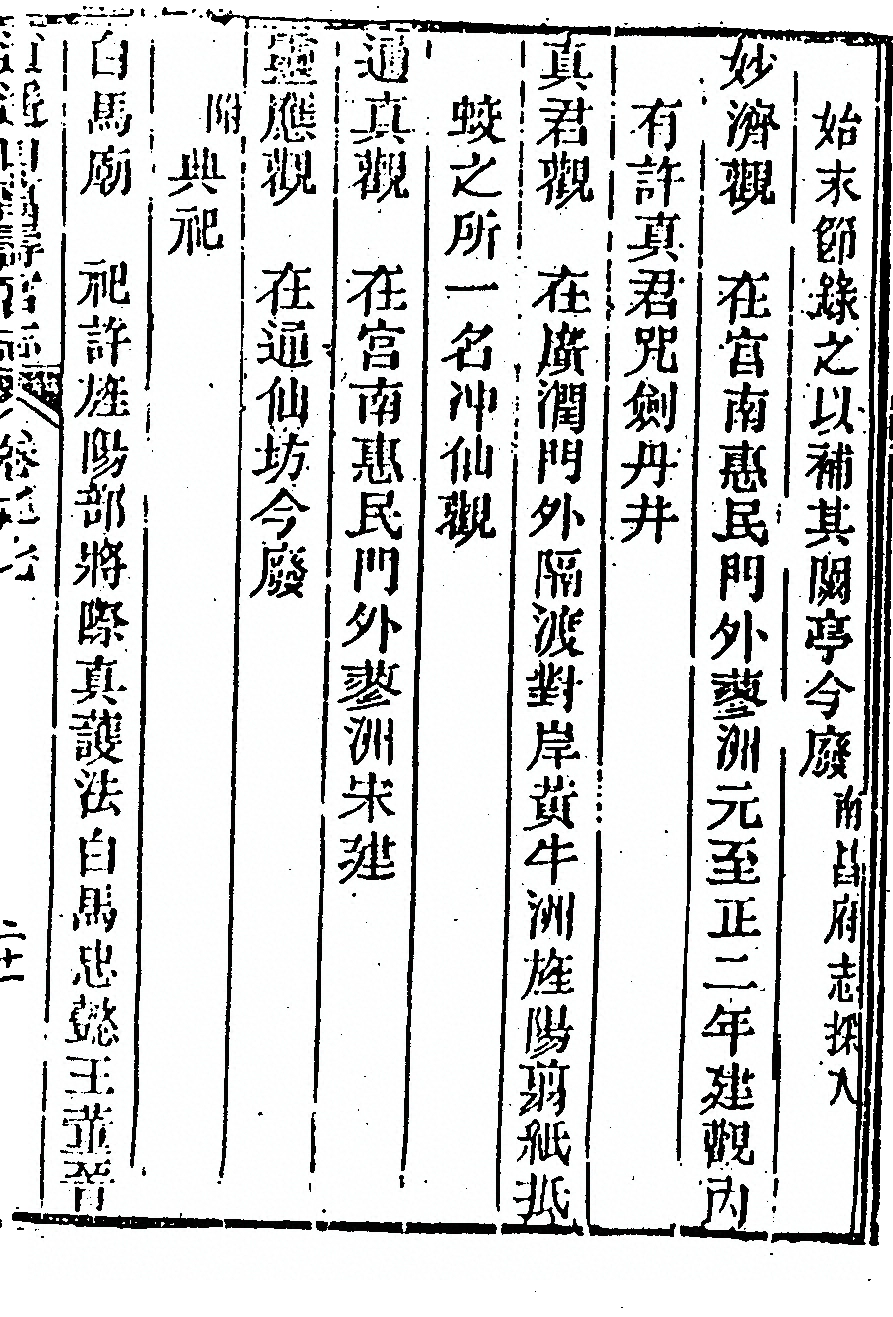 始末節錄之以補其闕亭今廢南昌府志採入
妙濟觀 在宮南惠民門外蓼洲元至正二年建觀內
有許真君咒劍丹井
真君觀 在廣潤門外隔渡對岸黃牛洲旌陽剪紙抵
蛟之所一名冲仙觀
通真觀 在宮南惠民門外蓼洲宋建
靈應觀 在通仙坊今廢
附典祀
白馬廟 祀許旌陽部將際真護法白馬忠懿王董晉